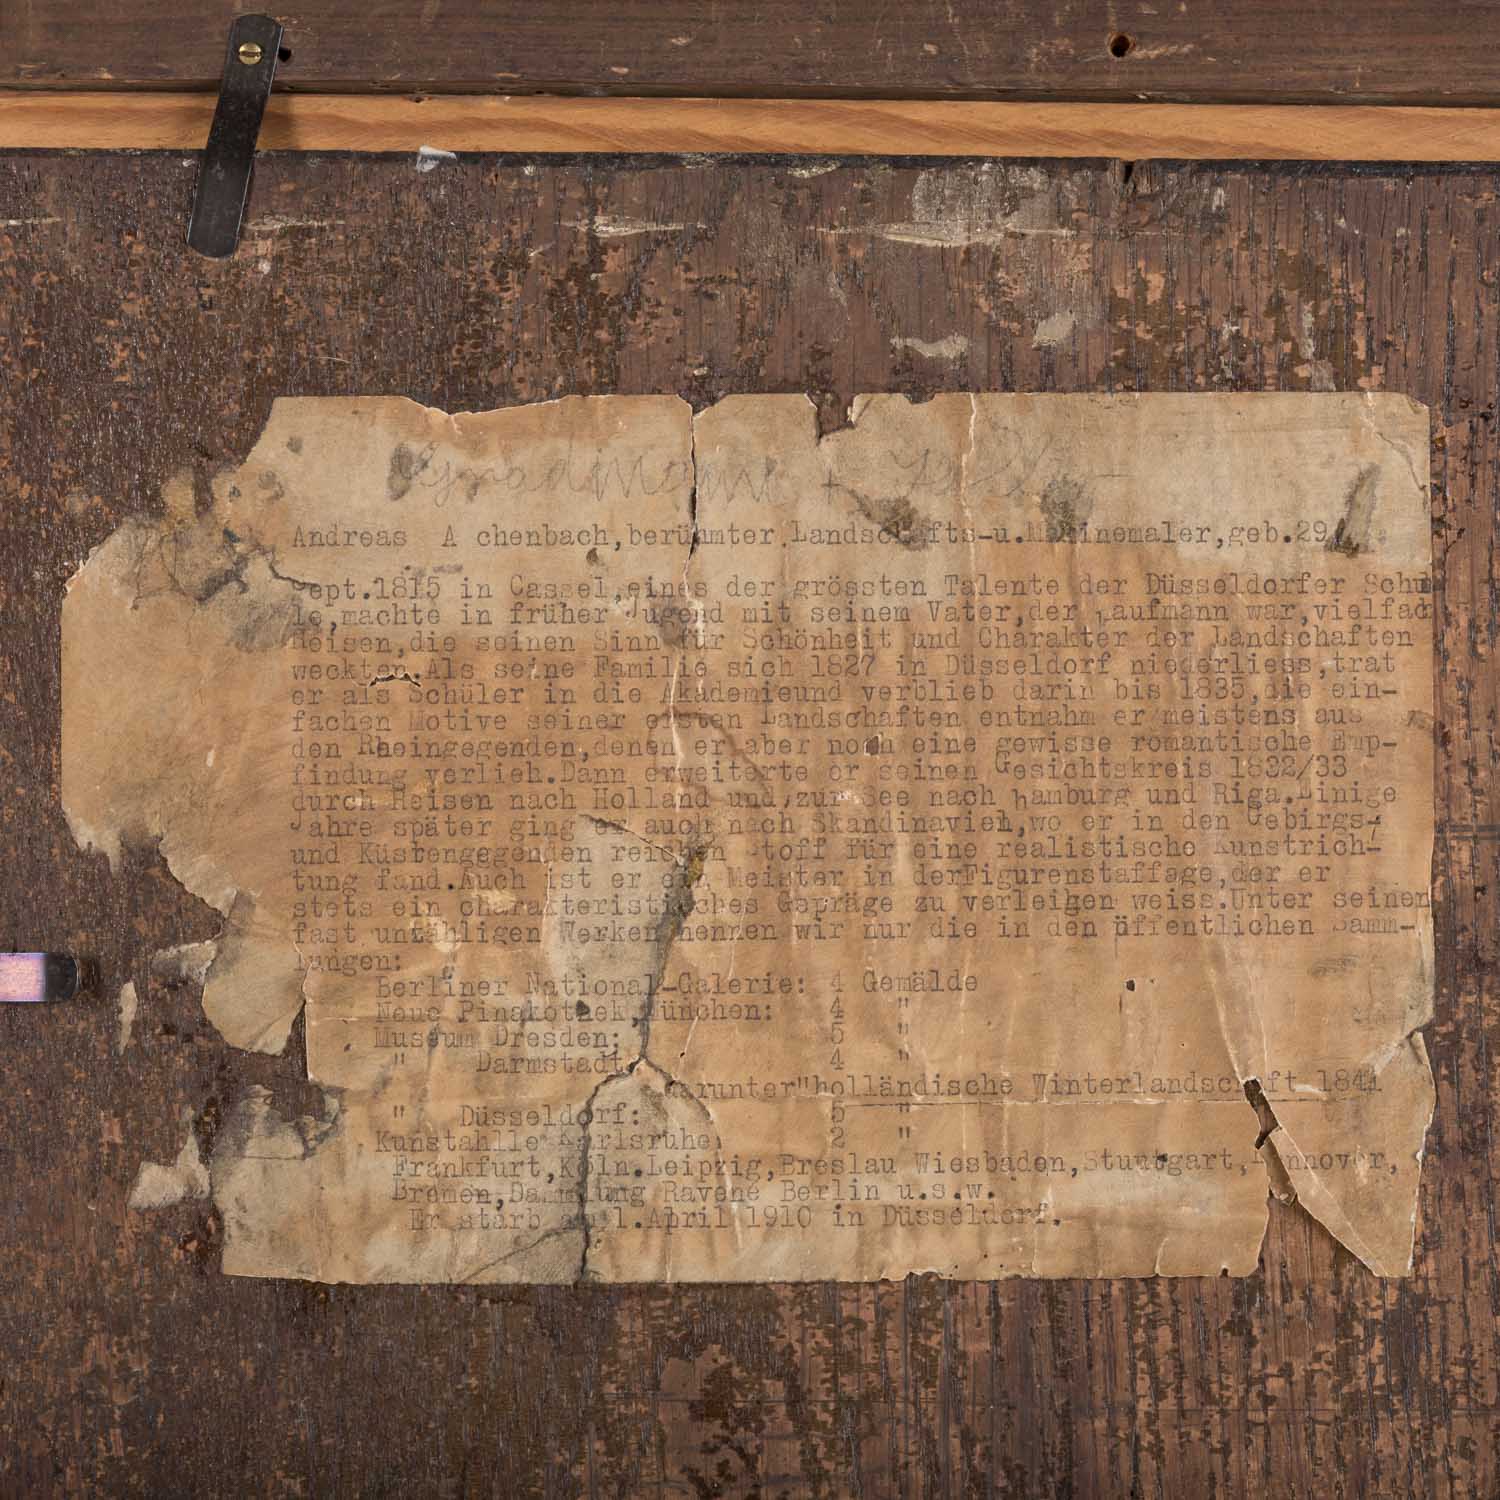 Andreas A chenbach,berühmter Landschafts-u.Marinemaler,geb.29.
Sept.1815 in Cassel,eines der grössten Talente der Düsseldorfer Schu
le,machte in früher Jugend mit seinem Vater,der Kaufmann war,vielfach
Reisen,die seinen Sinn für Schönheit und Charakter der Landschaften
weckten.Als seine Familie sich 1827 in Düsseldorf niederliess,trat
er als Schüler in die Akademieund verblieb darin bis 1835,die ein-
fachen Motive seiner ersten Landschaften entnahm er meistens aus
den Rheingegenden,denen er aber noch eine gewisse romantische Emp-
findung verlieh.Dann erweiterte er seinen Gesichtskreis 1832/33
durch Reisen nach Holland und,zur See nach Hamburg und Riga.Einige
Jahre später ging er auch nach Skandinavien,wo er in den Gebirgs-
und Küstengegenden reichen Stoff für eine realistische Kunstrich-
tung fand.Auch ist er ein Meister in derFigurenstaffage,der er
stets ein charakteristisches Gepräge zu verleigen weiss.Unter seinen
fast unzähligen Werken nennen wir nur die in den öffentlichen Samm-
lungen:
Berliner National-Galerie: 4 Gemälde
Neue Pinakothek,München: 4 "
Museum Dresden: 5 "
" Darmstadt 4 "
darunter"holländische Winterlandschaft 1841
" Düsseldorf: 5 "
Kunstahlle Karlsruhe: 2 "
Frankfurt,Köln.Leipzig,Breslau Wiesbaden,Stuttgart,Hannover,
Bremen, Ravené Berlin u.s.w.
Er starb am 1.April 1910 in Düsseldorf.